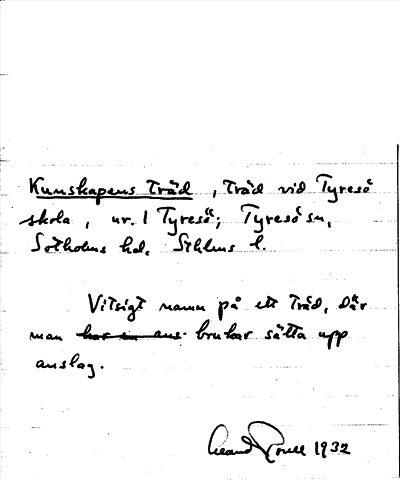 Kunskapens träd, träd vid Tyresö
skola, nr. 1 Tyresö; Tyresö sn,
Sotholms hd. Sthlms l.
Vitsigt namn på ett träd, där
man har en ans. brukar sätta upp
anslag.
1932